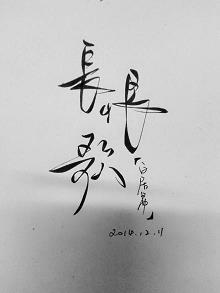 長恨歌
「白居易」
2016.12.11